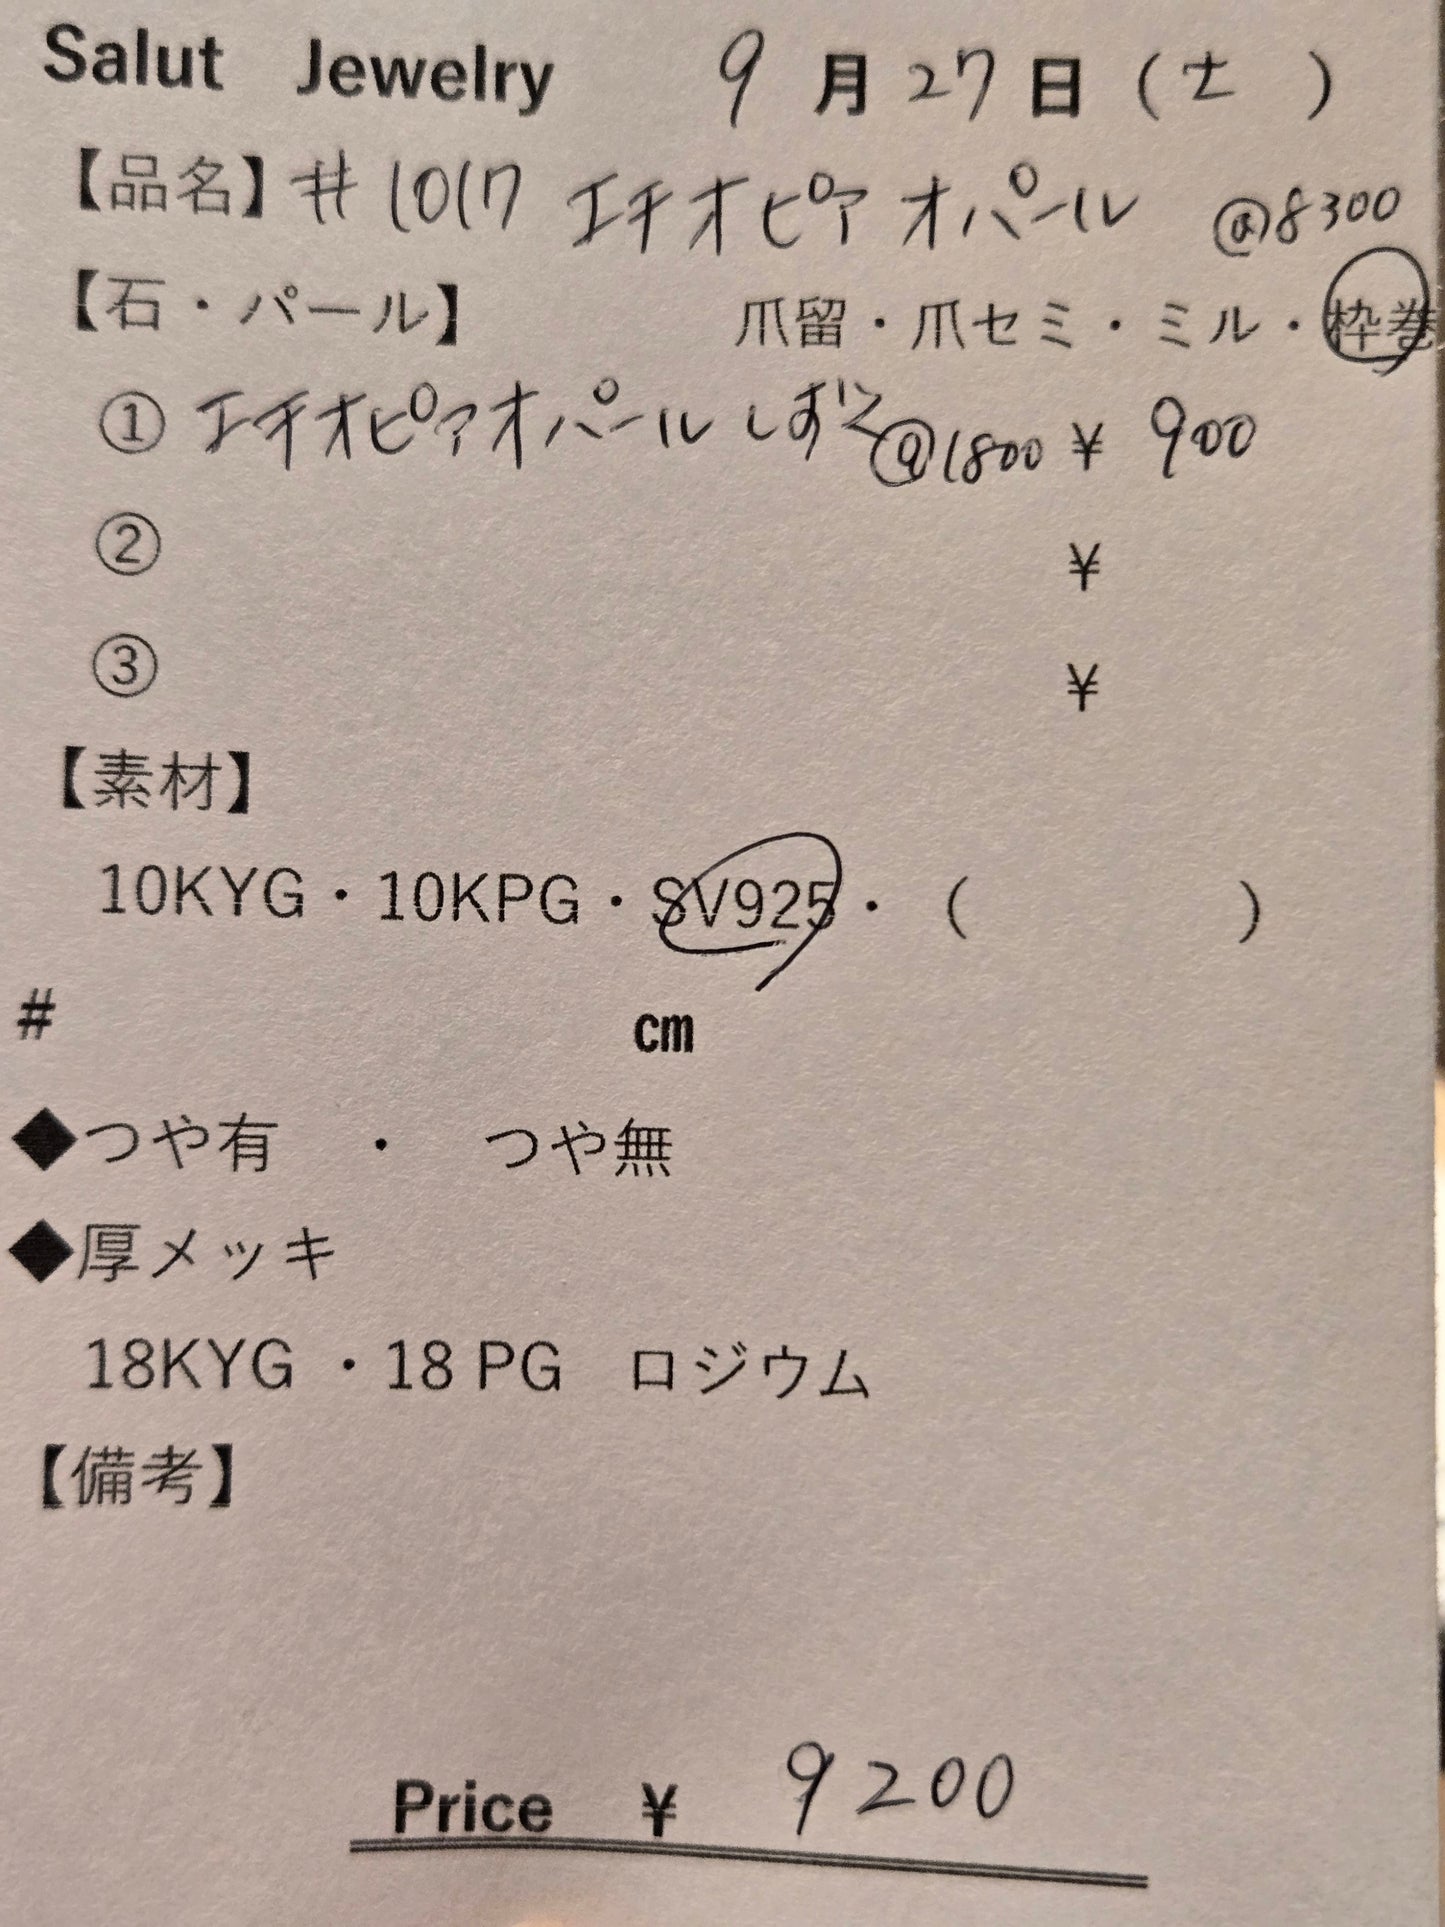 Salut Jewelry 9月27日(土)
【品名】#1017 エチオピアオパール @8300
【石・パール】 爪留・爪セミ・ミル・枠巻
① エチオピアオパール しずく @1800 ¥ 900
② ¥
③ ¥
【素材】
10KYG・10KPG・SV925・( )
# cm
◆つや有 ・ つや無
◆厚メッキ
18KYG ・18 PG ロジウム
【備考】
Price ¥ 9200